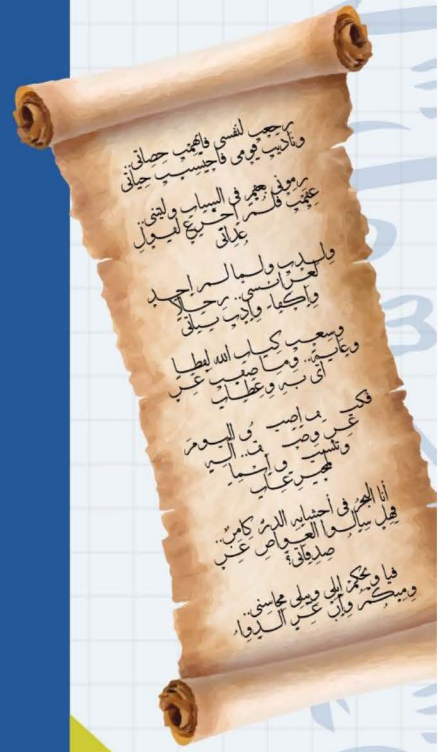 رجعت لنفسي فاتهمت حصاتي..
وناديت قومي فاحتسبت حياتي
رموني بعقم في الشباب وليتني..
عقمت فلم أجزع لقول
عداتي
ولدت ولما لم أجد
لعرائسي.. رجالا
وأكفاء وأدت بناتي
وسعت كتاب الله لفظا
وغاية.. وما ضقت عن
آي به وعظات
اليوم
عن وصف آلة
أنا البحر في أحشائه الدر كامن..
فهل سألوا الغواص عن
صدفاتي؟
فيا ويحكم أبلى وتبلى محاسني..
ومنكم وإن عز الدواء